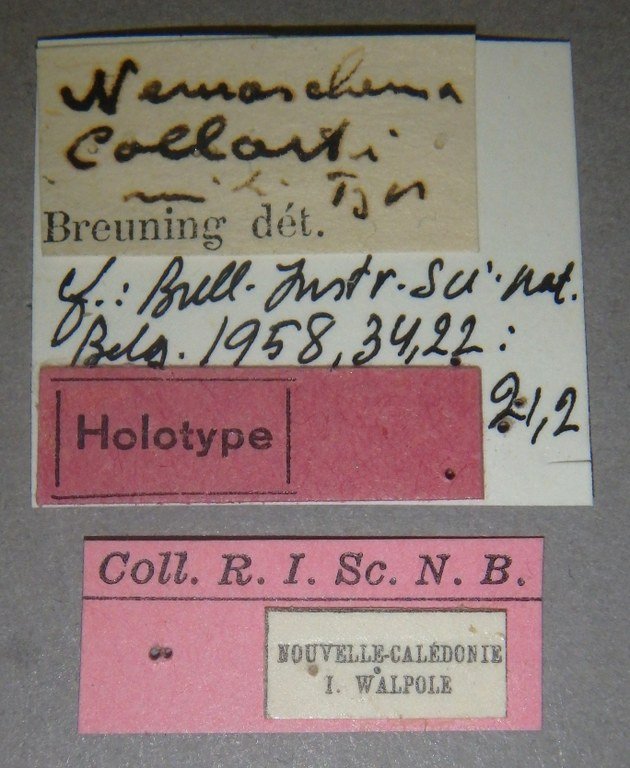 Nemaschema
Collarti
mihi Typ
Breuning dét.
cf.: Bull. Inst r. Sci. nat.
Belg. 1958, 34, 22 :
21,2
Holotype
Coll. R. I. Sc. N. B.
NOUVELLE-CALÉDONIE
I. WALPOLE